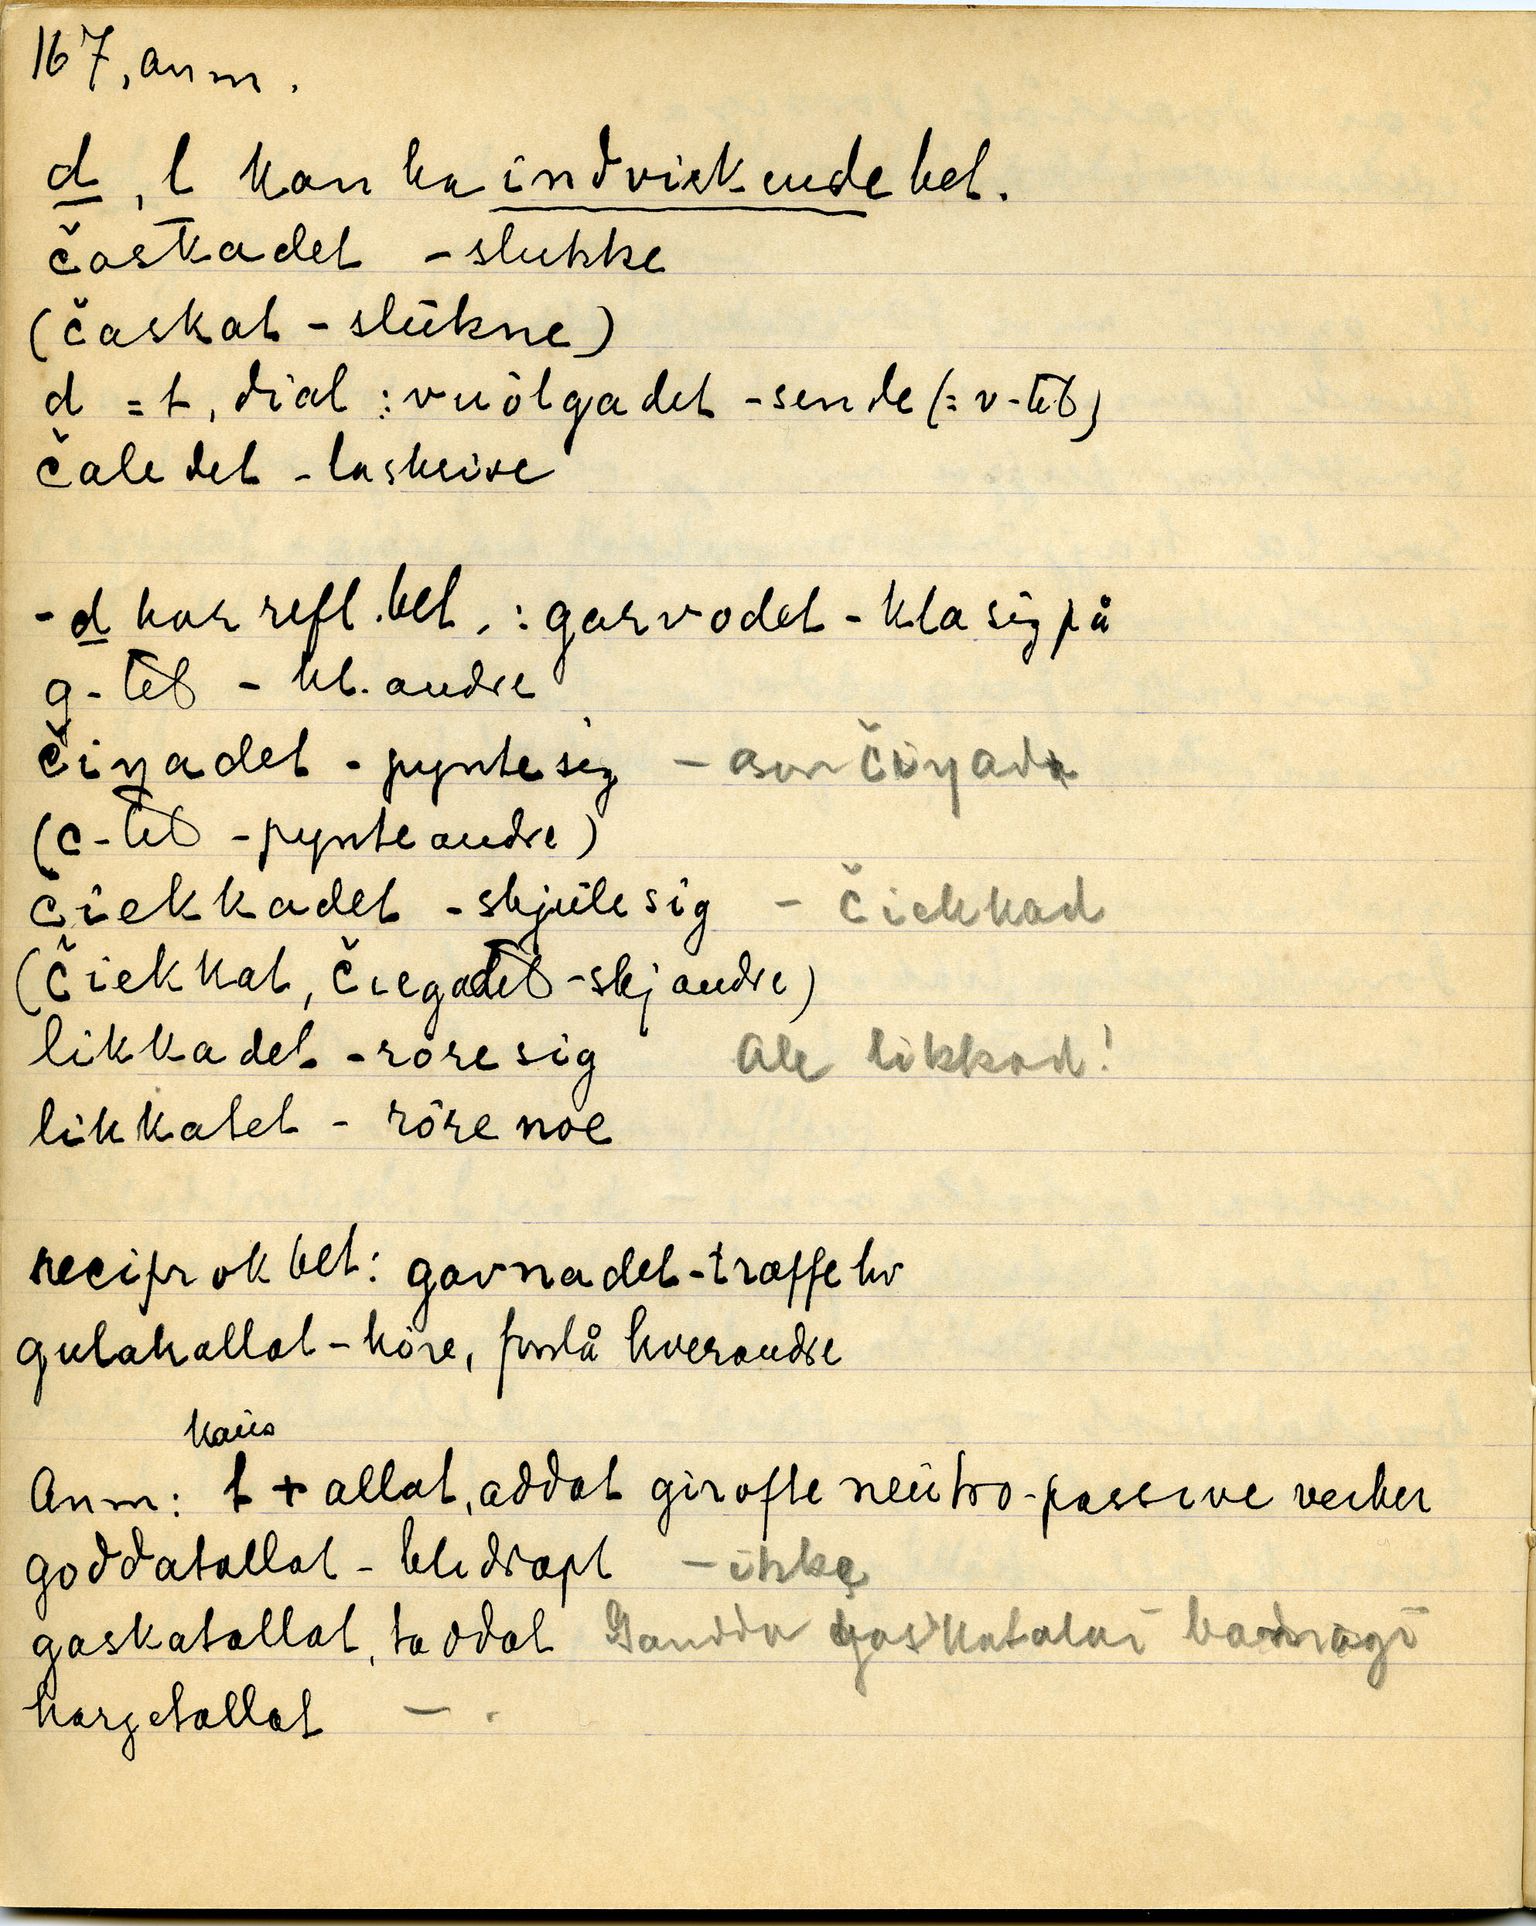 167, anm.
d, l kan ha indvirkende bet.
časkadet - slukke
(časkat - slŭkne)
d = t, dial: vuolgadet - sende (= v-tet)
čaledet - la skrive
- d har refl. bet.: garvodet - klæ sig på
g-tet - kl. andre
čiŋadet - pynte sig - čiŋad
(c-tet - pynte andre)
čiekkadet - skjŭle sig - čiekkad
(čiekkat, čiegatet - skj andre)
likkadet - röre sig Ale likkad!
likkatet - röre noe
reciprok bet: gavnadet - træffe hv
gulahallat - höre, forstå hverandre
kaŭs
Anm: t + allat, addat gir ofte neŭtro-passive verber
goddatallat - bli dræpt - ikke
gaskatallat, taddat gaskatalai
hargetallat -